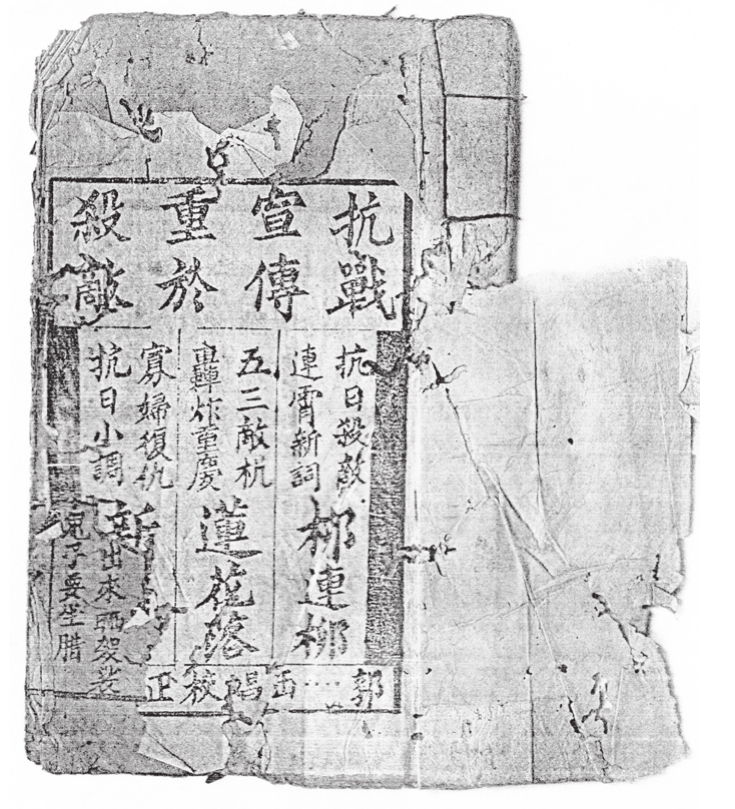 抗戰
宣傳
重於
殺敵
抗日殺敵
連霄新詞
柳連柳
五三敵杭
轟炸重慶
蓮花落
寡婦復仇
抗日小調
新
出來晒袈裟
鬼子要坐腊
郭……唱校正